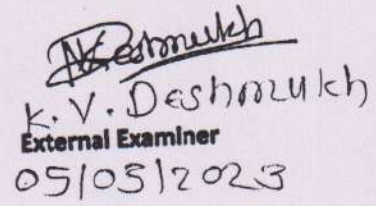 Deshmukh
K. V. Deshmukh
External Examiner
05/05/2023